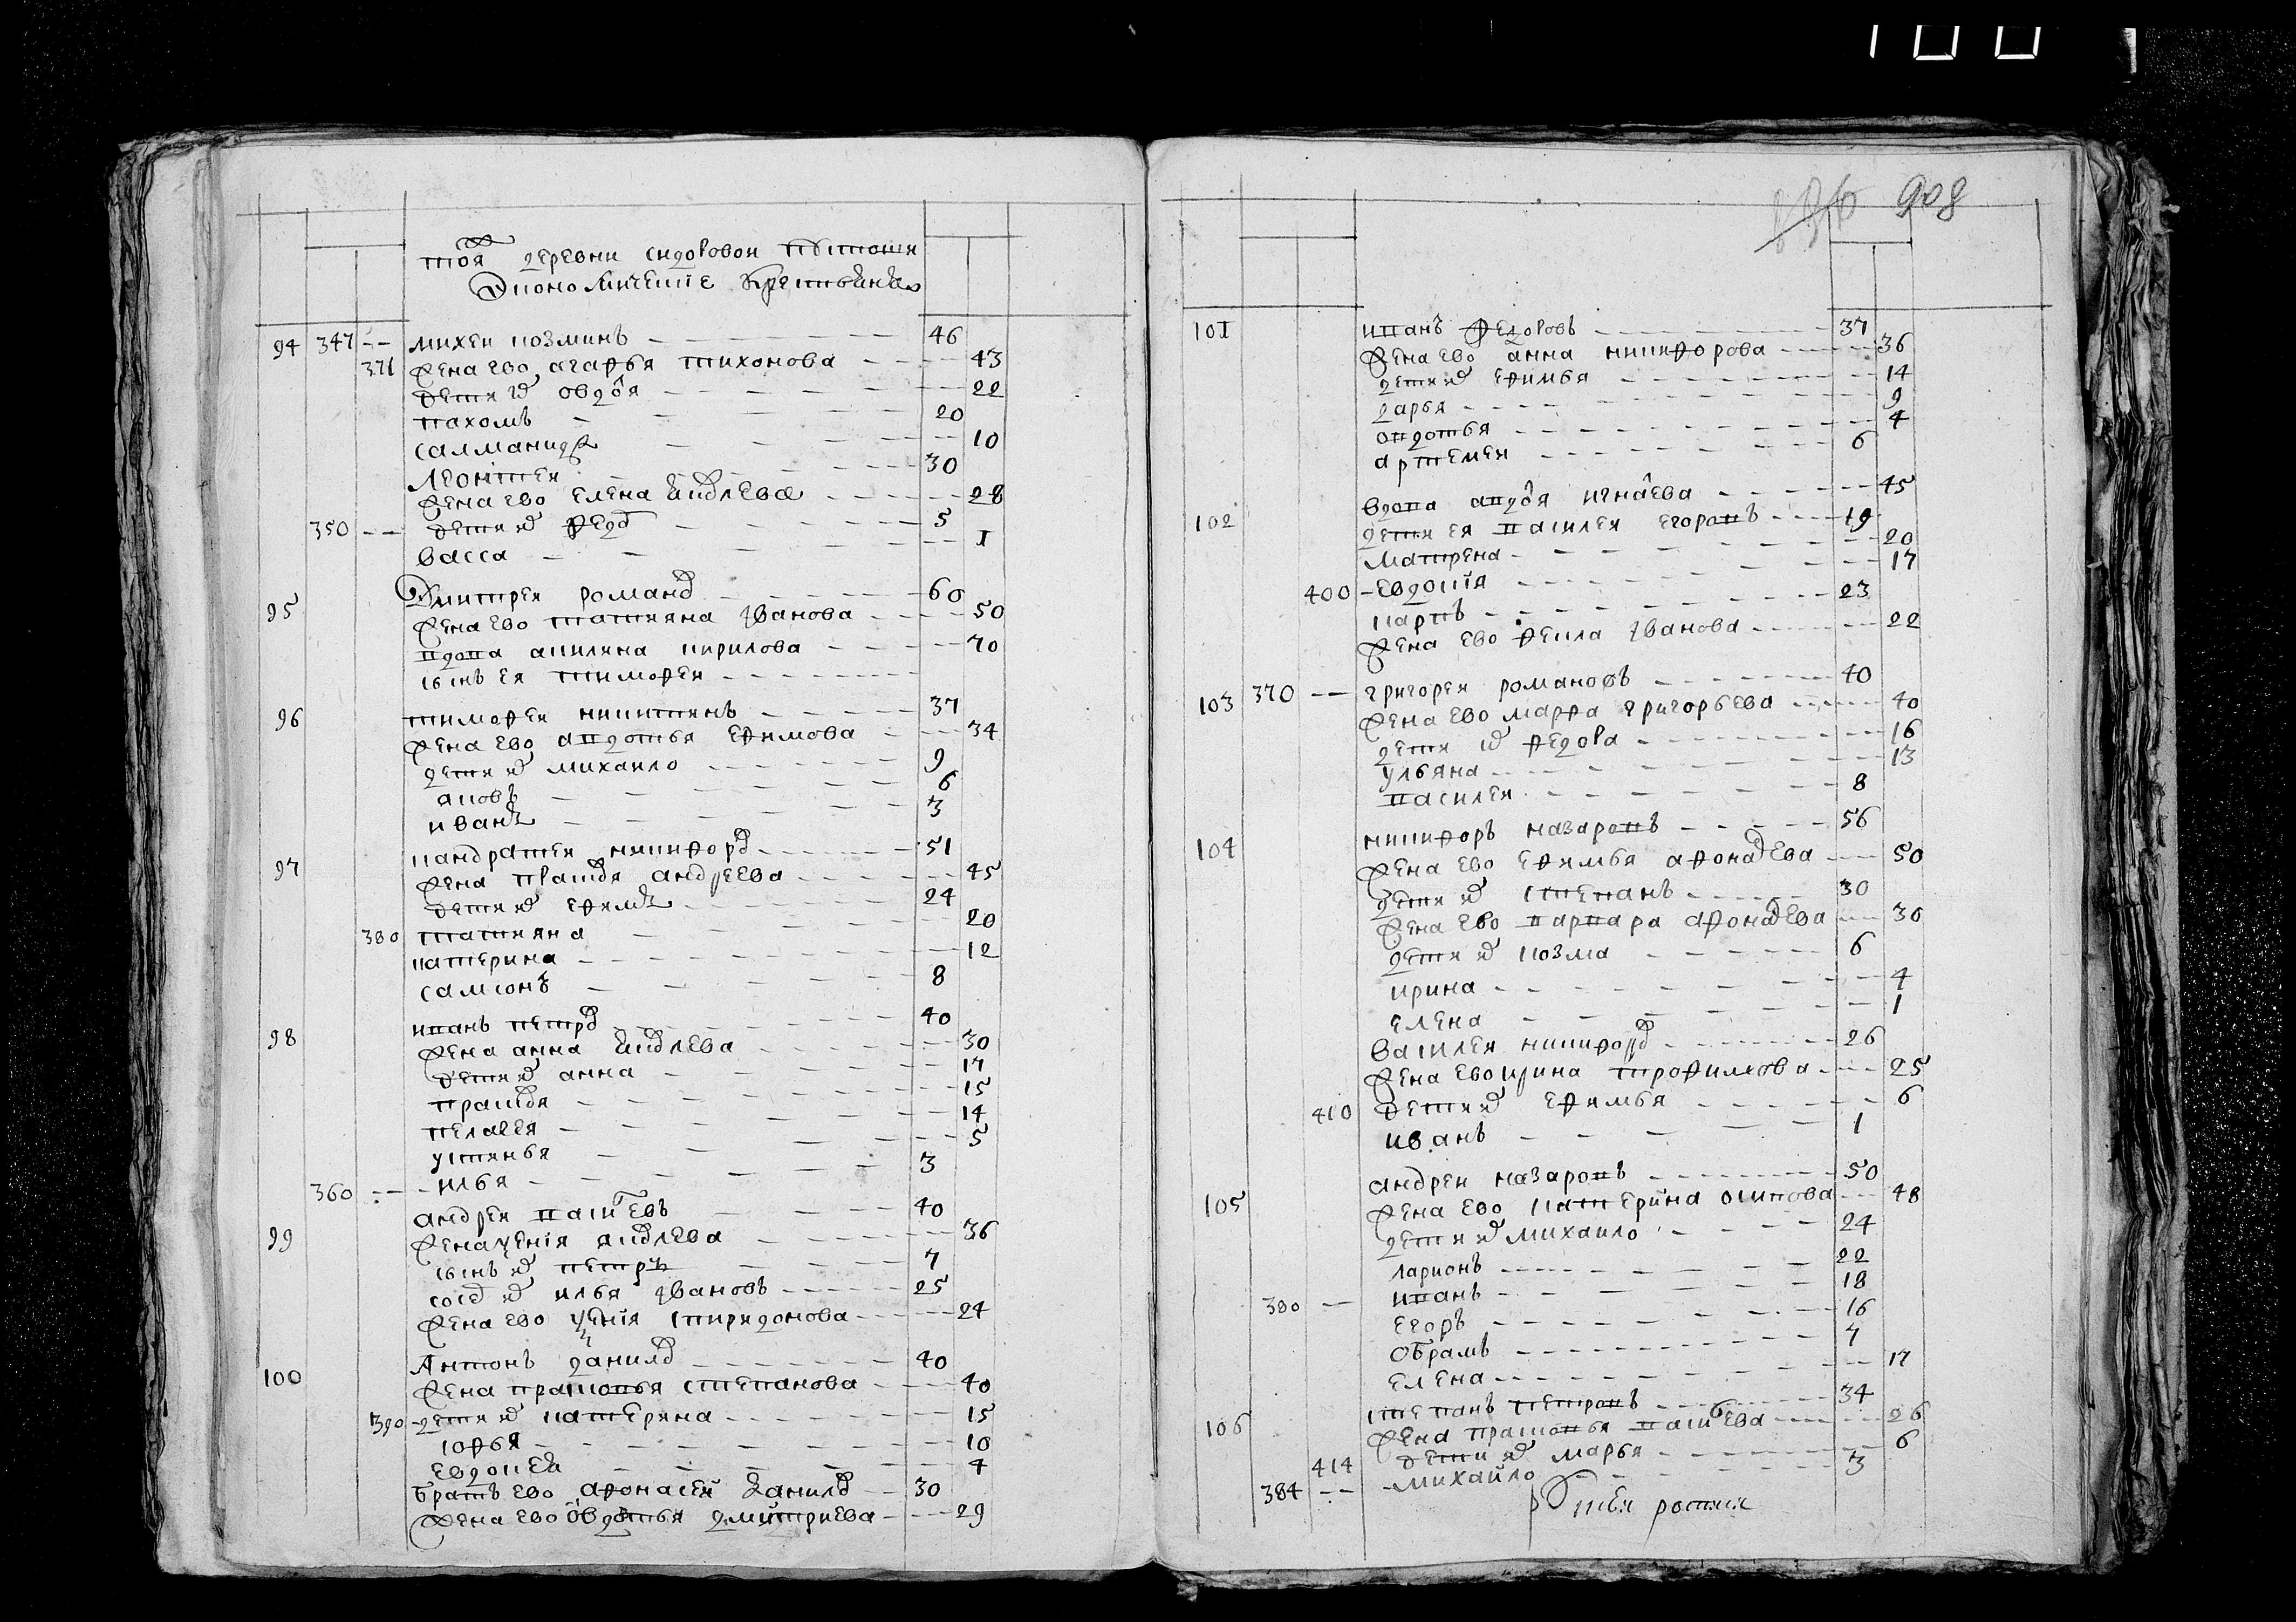 тоя деревни сидоровои
Экономические крестьяне
94 347 михеи козминъ 46
371 жена ево агафья тихонова 43
дети ид овдоя 22
пахомъ 20
саламанида 10
леонтеи 30
жена ево елена 28
350 дети ид федо 5
васса 1
95 Дмитреи романо 60
жена ево татияна Иванова 50
вдова акилина кирилова 70
сынъ ея тимофеи
96 тимофеи никитинъ 37
жена ево авдотья ефимова 34
дети ид михаило 9
аковъ 6
иванъ 3
97 кандратеи никифоро 51
жена праско андреева 45
дети ид ефимъ 24
380 татияна 20
катерина 12
самсонъ 8
98 иванъ петро 40
жена анна 30
дети ид анна 17
праско 15
пелагея 14
устинья 5
360 илья 3
99 андреи васиевъ 40
жена ксенiя 36
сынъ ид петръ 7
сосе ид илья Ивановъ 25
жена ево ксенiя спиридонова 24
100 Антонъ данило 40
жена прасковья степанова 40
390 дети ид катерина 15
софья 10
евдокеа 4
братъ ево афонасеи данило 30
жена ево овдотья дмитриева 29
908
101 иванъ федоровъ 37
жена ево анна никифорова 36
дети ид ефимья 14
дарья 9
овдотья 4
артемеи 6
102 вдова авдоя игнаева 45
дети ея василеи егоровъ 19
матрена 20
400 евдокiя 17
карпъ 23
жена ево фекла Иванова 22
103 370 григореи романовъ 40
жена ево марфа григорьева 40
дети ид федора 16
ульяна 13
василеи 8
104 никифоръ назаровъ 56
жена ево ефимья афонасева 50
дети ид степанъ 30
жена ево варвара афонасева 30
дети ид козма 6
ирина 4
елена 1
василеи никифоро 26
жена ево ирина трофимова 25
410 дети ид ефимья 6
иванъ 1
105 андреи назаровъ 50
жена ево катерина осипова 48
дети ид михаило 24
ларионъ 22
380 иванъ 18
егоръ 16
обрамъ 7
елена 17
106 степанъ петровъ 34
жена прасковья васиева 26
414 дети ид марья 6
384 михаило 3